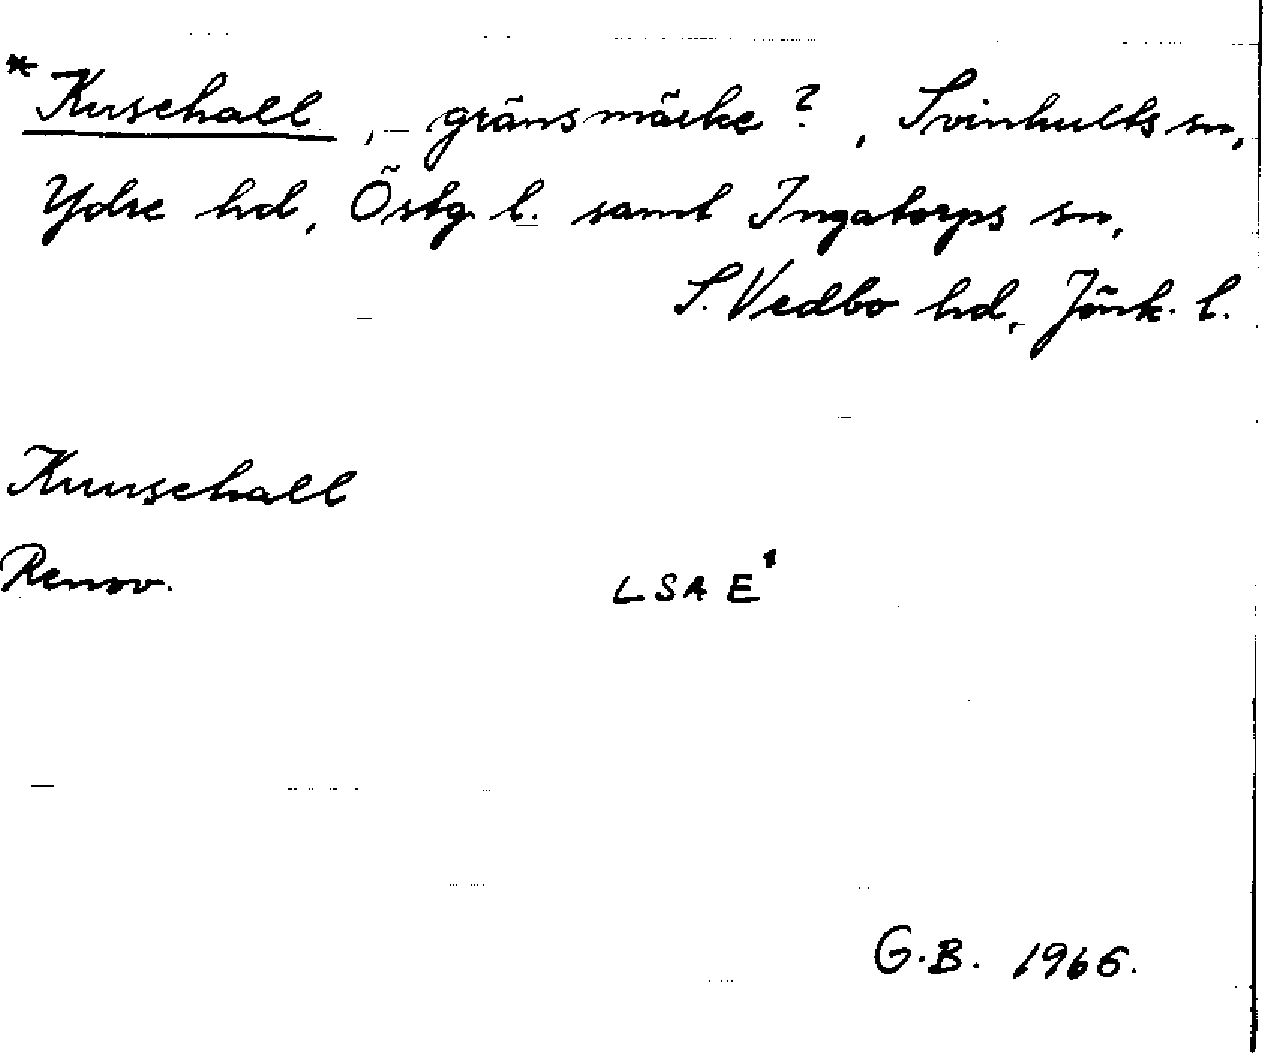 *Kuschall, gränsmärke?, Svinhults sn,
Ydre hd, Östg. l. samt Ingatorps sn,
S. Vedbo hd, Jönk. l.
Kuuschall
Renov. LSA E¹
G.B. 1966.